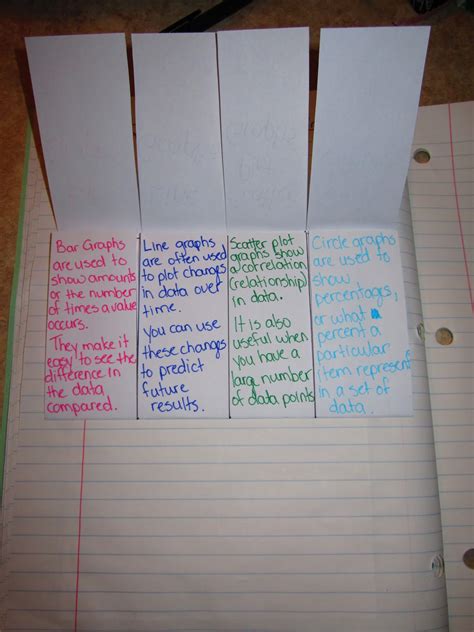 Bar Graphs
are used to
show amounts
or the number
of times a value
occurs.
They make it
easy to see the
difference in
the data
compared.
Line graphs
are often used
to plot changes
in data over
time.
you can use
these changes
to predict
future
results.
Scatter plot
graphs show
a correlation
(relationship)
in data.
It is also
useful when
you have a
large number
of data points
Circle graphs
are used to
show
percentages,
or what
percent a
particular
item represent
in a set of
data.